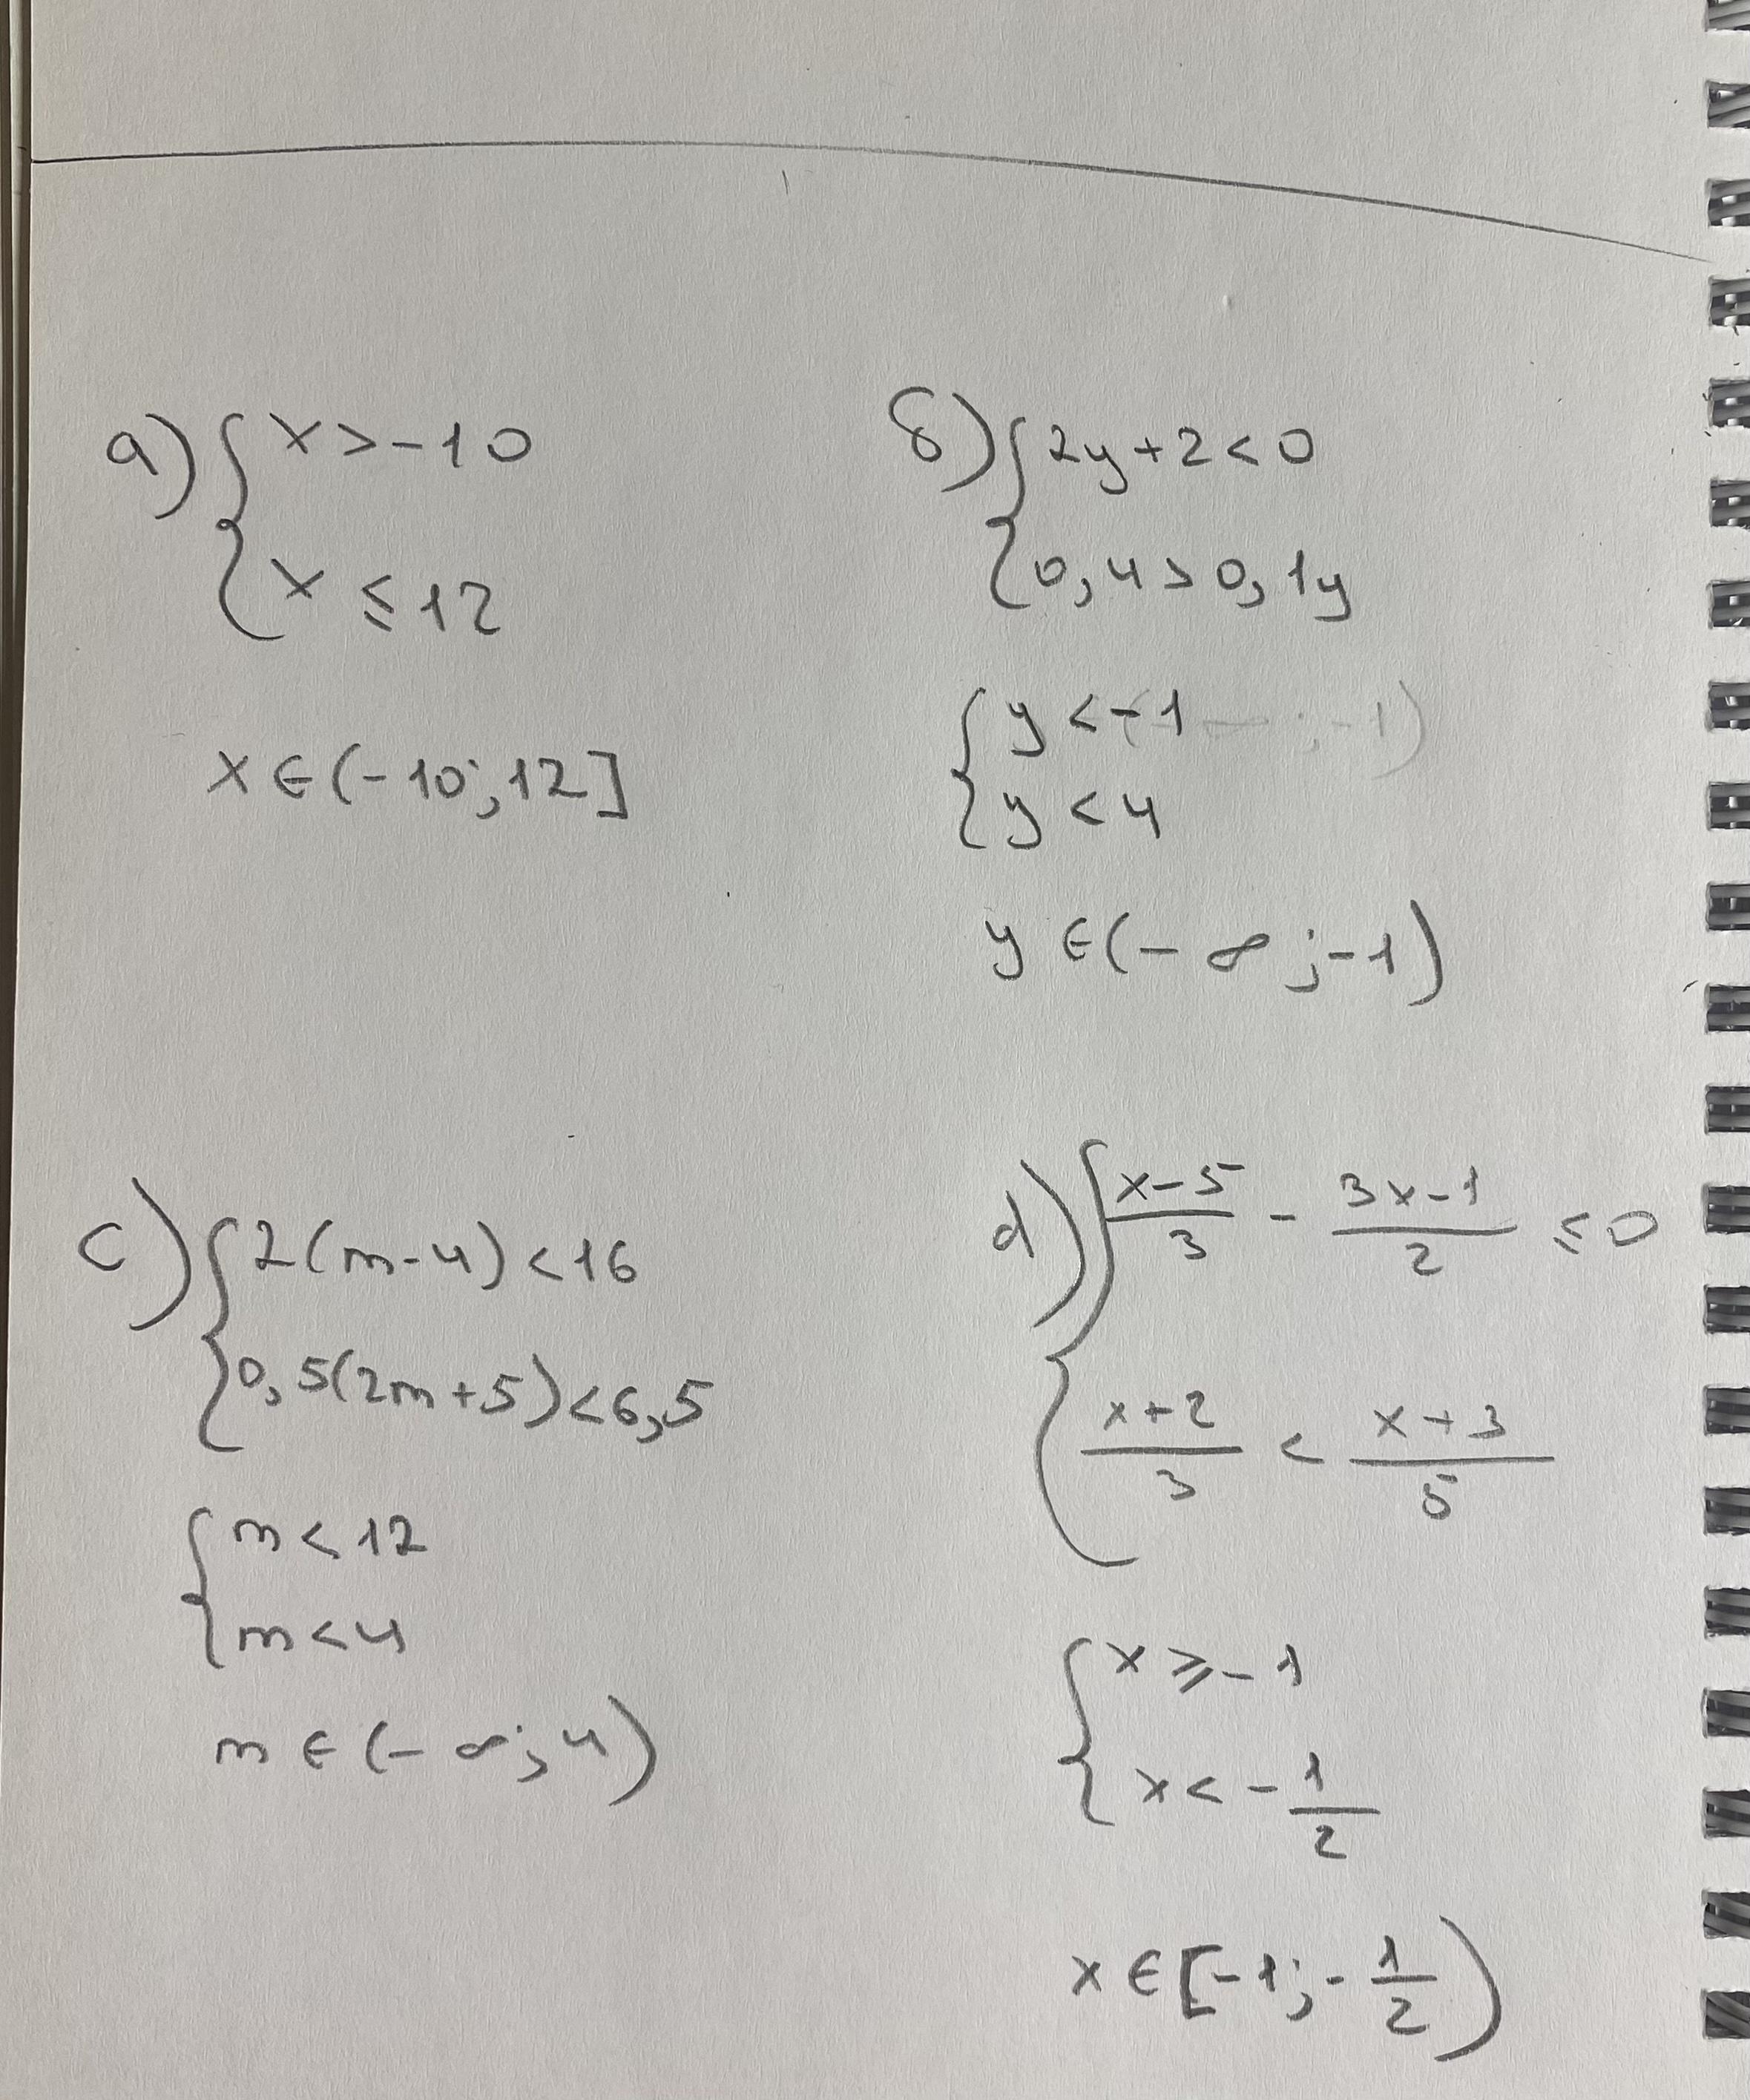 a) { x > -10
x ≤ 12
x ∈ (-10; 12]
б) { 2y + 2 < 0
0,4 > 0,1y
{ y < -1
y < 4
y ∈ (-∞; -1)
c) { 2(m-4) < 16
0,5(2m+5) < 6,5
{ m < 12
m < 4
m ∈ (-∞; 4)
d) { (x-5)/3 - (3x-1)/2 ≤ 0
(x+2)/3 < (x+3)/5
{ x ≥ -1
x < -1/2
x ∈ [-1; -1/2)